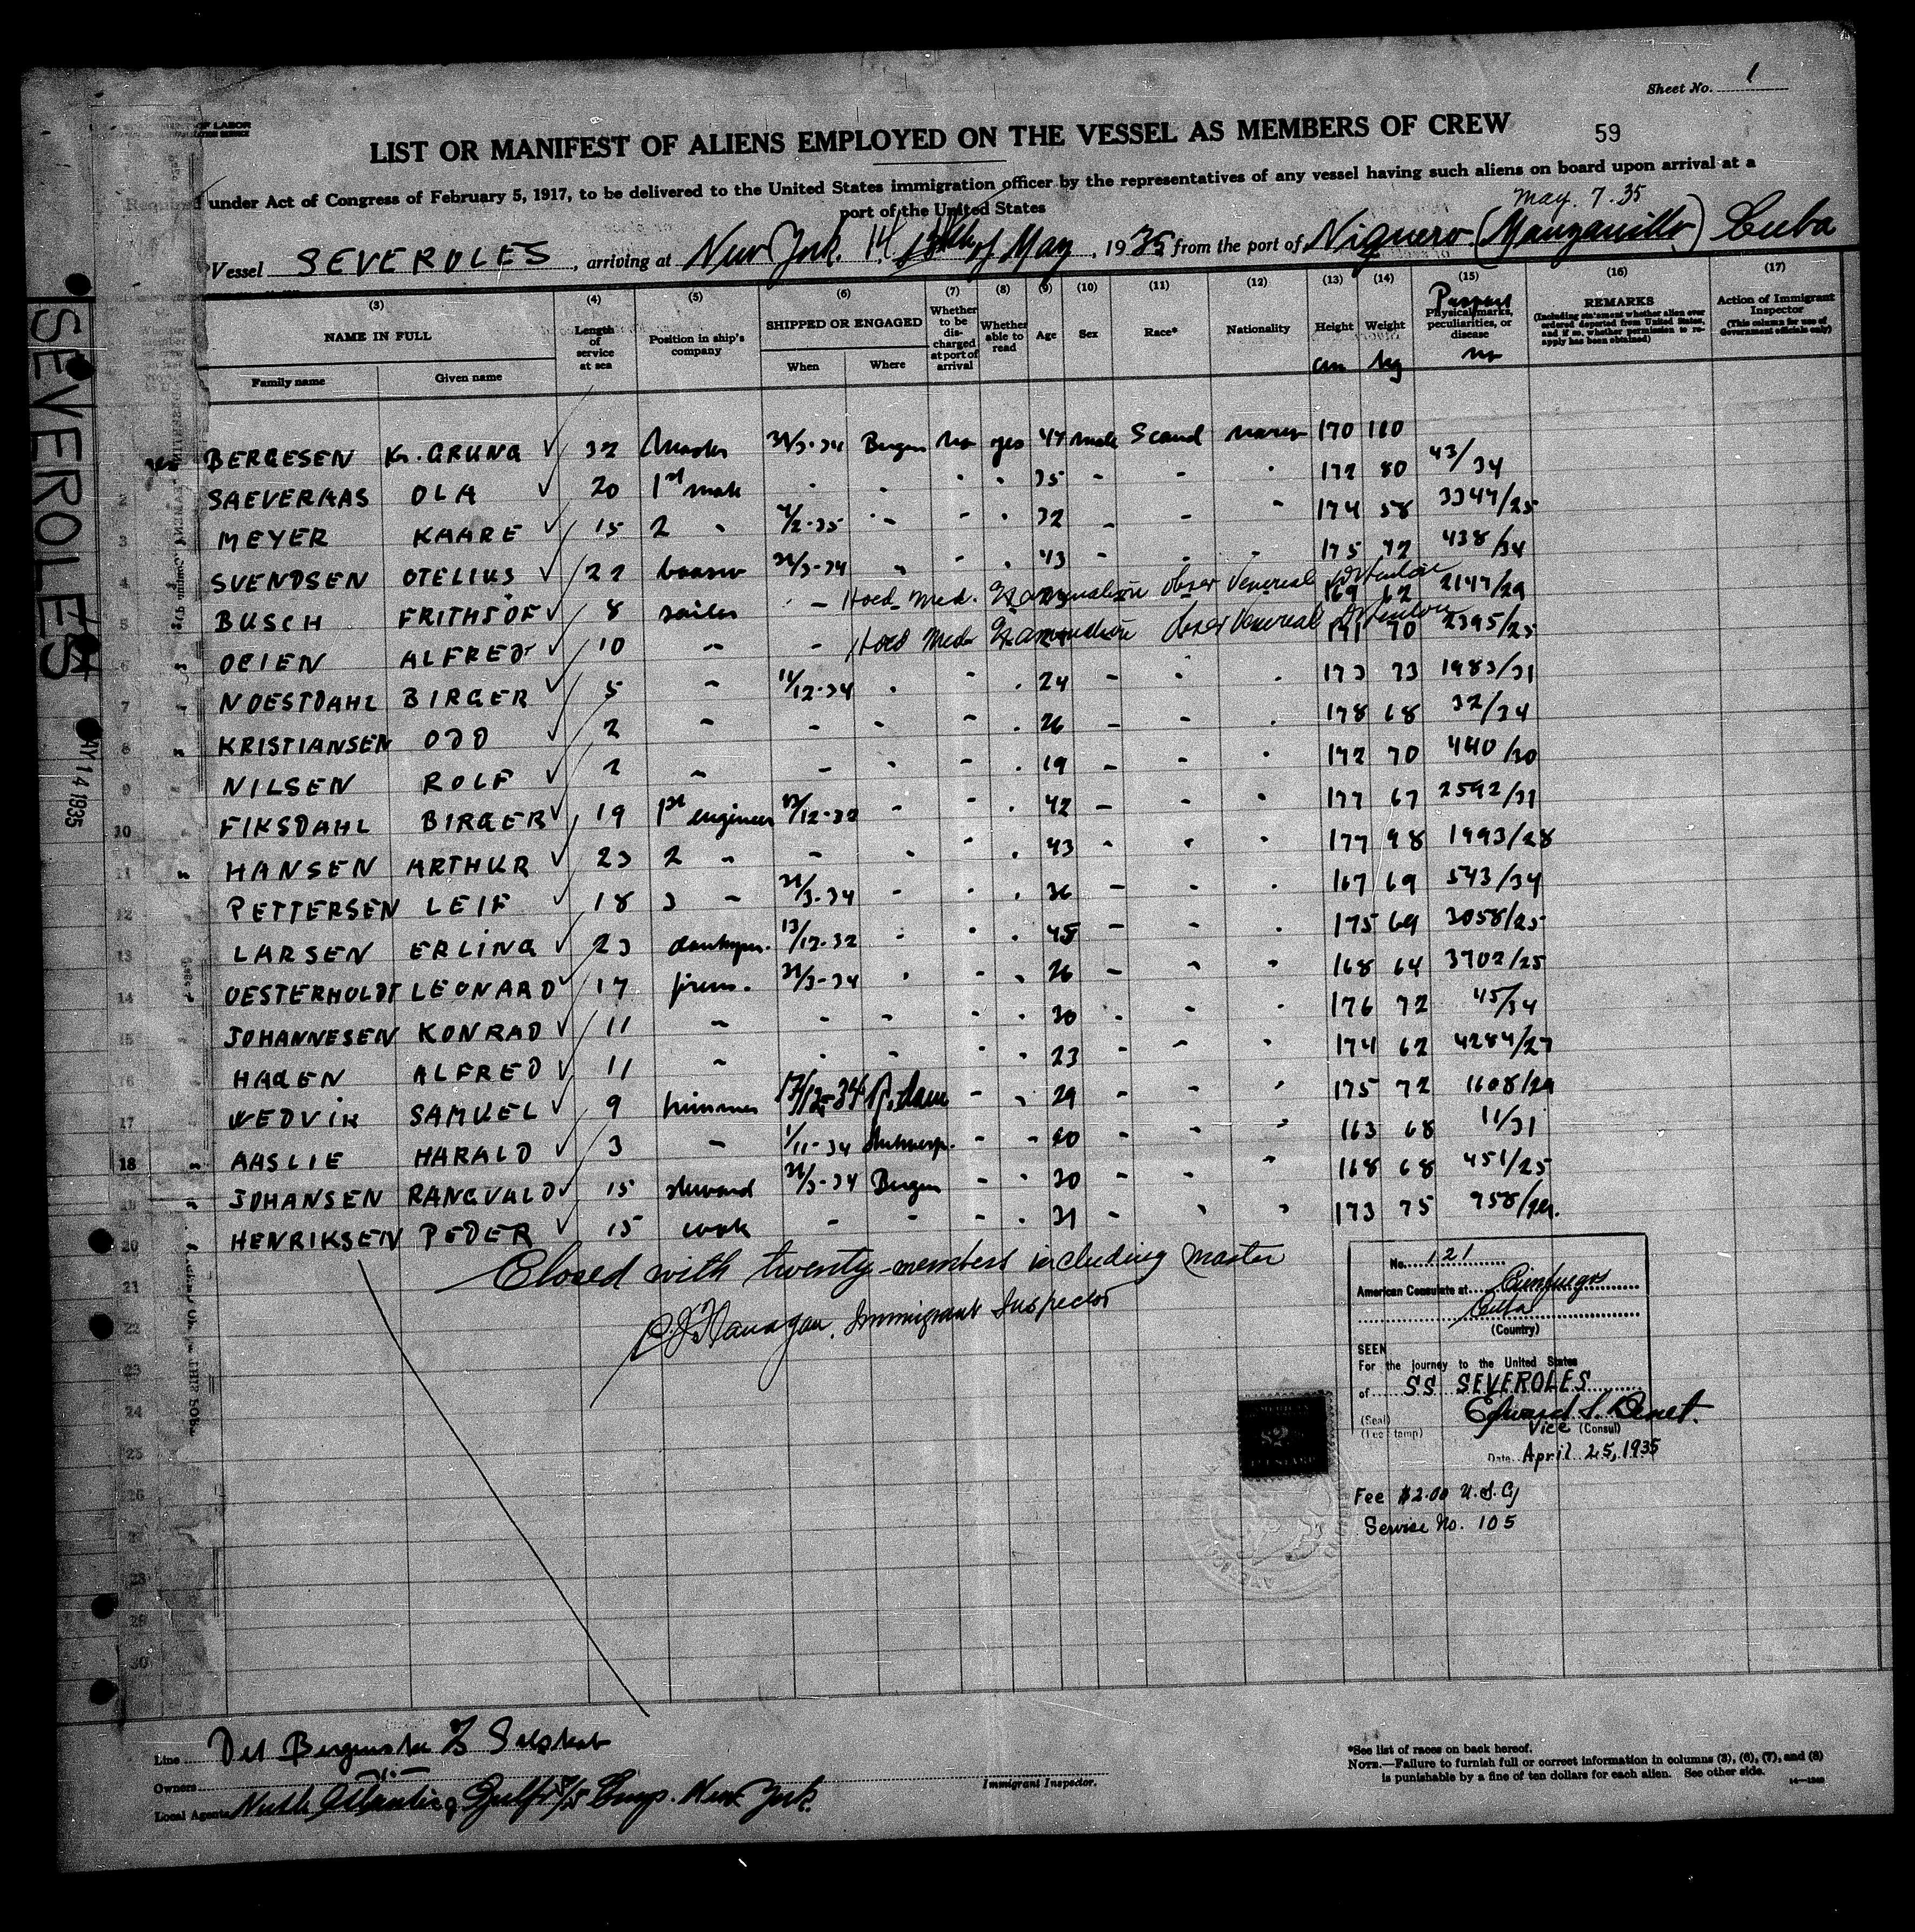 Sheet No. 1
OF LABOR
LIST OR MANIFEST OF ALIENS EMPLOYED ON THE VESSEL AS MEMBERS OF CREW
59
Required under Act of Congress of February 5, 1917, to be delivered to the United States immigration officer by the representatives of any vessel having such aliens on board upon arrival at a
port of the United States
May. 7. 35
Vessel SEVEROLES, arriving at New York. 14 of May, 1935 from the port of Niquero (Manzanillo) Cuba
(3) (4) (5) (6) (7) (8) (9) (10) (11) (12) (13) (14) (15) (16) (17)
NAME IN FULL
Family name
Given name
Length of service at sea
Position in ship's company
SHIPPED OR ENGAGED
When
Where
Whether to be discharged at port of arrival
Whether able to read
Age
Sex
Race*
Nationality
Height
cm
Weight
kg
Passport
Physical marks, peculiarities, or disease
nr
REMARKS
(Including statement whether alien ever ordered deported from United States, and if so, whether permission to reapply has been obtained)
Action of Immigrant Inspector
(This column for use of Government officials only)
BERGESEN K. GRUNG ✓ 32 Master 24/3-34 Bergen no yes 47 male Scand norw 170 110
2 SAEVERAAS OLA ✓ 20 1st mate - - - - 35 - - - 172 80 43/34
3 MEYER KAARE ✓ 15 2 - 4/2-35 - - - 32 - - - 174 58 3347/25
4 SVENDSEN OTELIUS ✓ 22 24/3-34 - - - 43 - - - 175 72 438/34
5 BUSCH FRITHJOF ✓ 8 sailor - Hold Med. Examination Obser Venereal Detention 169 62 2147/29
6 OEIEN ALFRED ✓ 10 - - Hold Med Examination Obser Venereal Detention 171 70 2395/25
7 NOESTDAHL BIRGER ✓ 5 - 11/12-34 - - - 24 - - - 173 73 1983/31
8 KRISTIANSEN ODD ✓ 2 - - - - - 26 - - - 178 68 32/34
9 NILSEN ROLF ✓ 2 - - - - - 19 - - - 172 70 440/30
10 FIKSDAHL BIRGER ✓ 19 1st engineer - - - 42 - - - 177 67 2592/31
11 HANSEN ARTHUR ✓ 23 2 - - - - - 43 - - - 177 98 1993/28
12 PETTERSEN LEIF ✓ 18 3 - 24/3-34 - - - 36 - - - 167 69 543/34
13 LARSEN ERLING ✓ 23 donkeym. 13/12-32 - - - 45 - - - 175 69 3058/25
14 OESTERHOLDT LEONARD ✓ 17 firem. 24/3-34 - - - 26 - - - 168 64 3702/25
15 JOHANNESEN KONRAD ✓ 11 - - - - - 30 - - - 176 72 45/34
16 HAGEN ALFRED ✓ 11 - - - - - 23 - - - 174 62 4284/27
17 WEDVIK SAMUEL ✓ 9 trimmer 17/12-34 R.dam - - 29 - - - 175 72 1608/29
18 AASLIE HARALD ✓ 3 - 1/11-34 Antwerp. - - 20 - - - 163 68 11/31
19 JOHANSEN RANGVALD ✓ 15 steward 24/3-34 Bergen - - 30 - - - 168 68 451/25
20 HENRIKSEN PEDER ✓ 15 cook - - - - 31 - - - 173 75
21
22
23
24
25
26
27
28
29
30
Closed with twenty-members including master
Immigrant Inspector
No. 121
American Consulate at Cienfuegos
Cuba
(Country)
SEEN
For the journey to the United States
of SS SEVEROLES
(Seal)
(Fee stamp)
Vice (Consul)
Date April 25, 1935
Fee $2.00 U.S.Cy
Service No. 105
SEVEROLES
MAY 14 1935
Line Det Bergenske D/S Selskab
Owners
Local Agents North Atlantic & Gulf S/S Corp. New York.
Immigrant Inspector.
*See list of races on back hereof.
NOTE.—Failure to furnish full or correct information in columns (3), (6), (7), and (8)
is punishable by a fine of ten dollars for each alien. See other side.